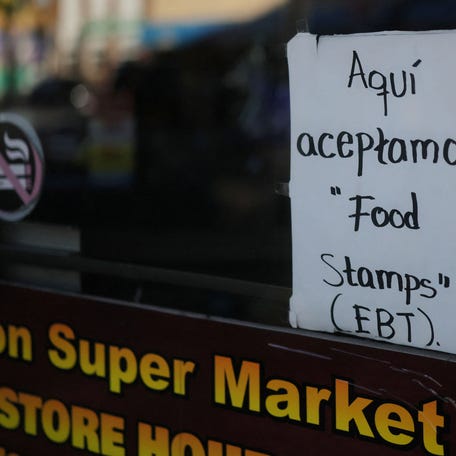 Aquí
aceptamo
"Food
Stamps"
(EBT).
on Super Market
STORE HOU